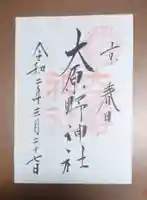 京春日
大原野神社
令和二年三月二十七日